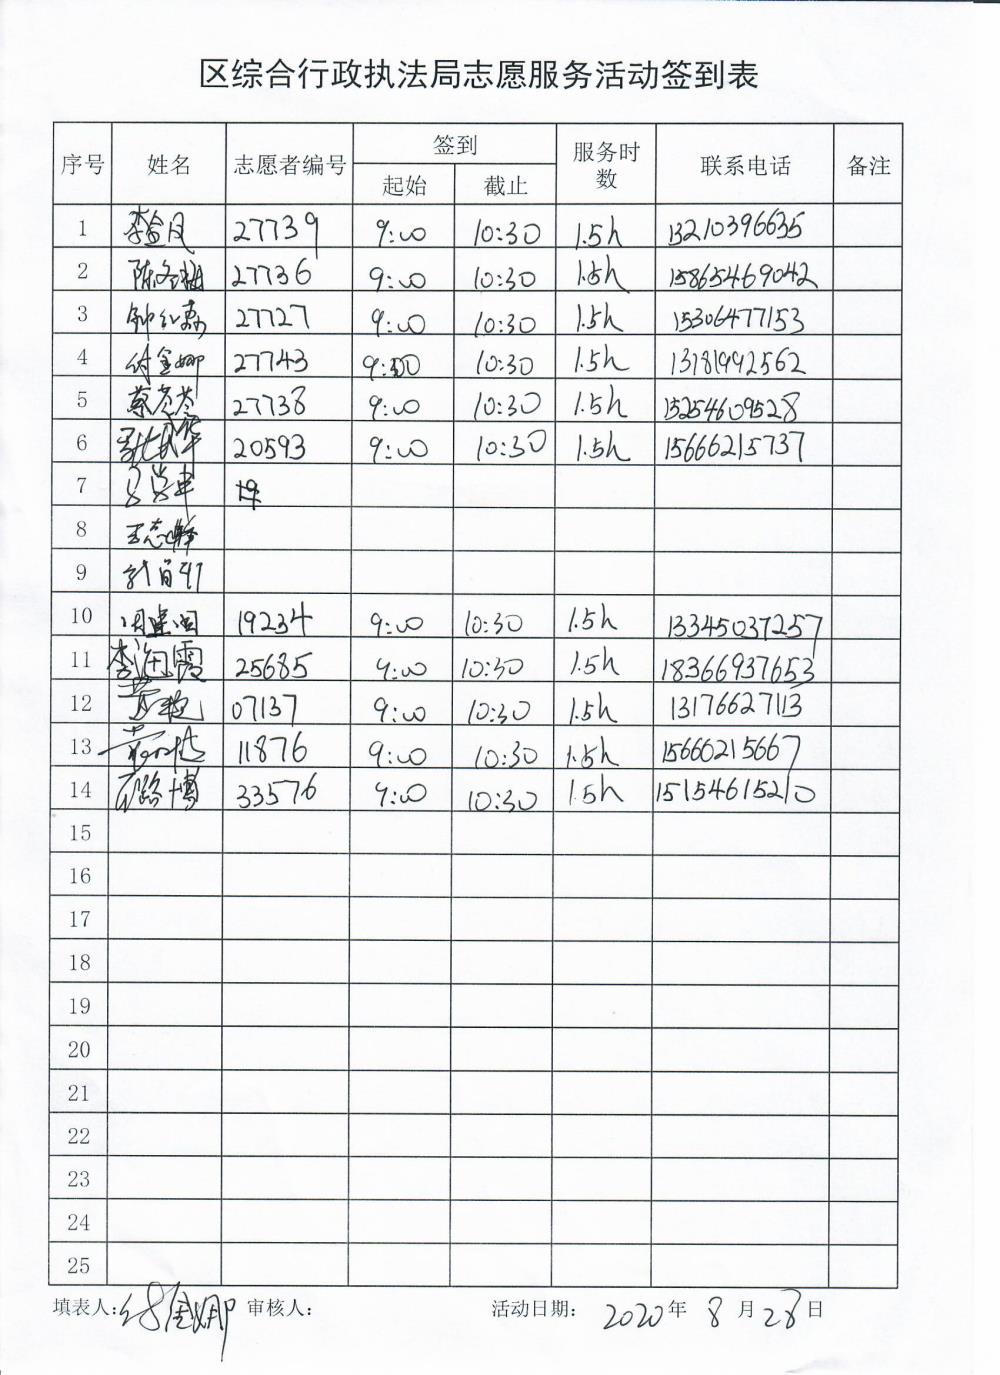 区综合行政执法局志愿服务活动签到表
序号 姓名 志愿者编号 签到 服务时数 联系电话 备注
起始 截止
1 27739 9:00 10:30 1.5h 13210396635
2 27736 9:00 10:30 1.5h 15865469042
3 27727 9:00 10:30 1.5h 15306477153
4 付金娜 27743 9:00 10:30 1.5h 13181992562
5 27738 9:00 10:30 1.5h 15254609528
6 20593 9:00 10:30 1.5h 15666215737
7
8
9
10 19234 9:00 10:30 1.5h 13345037257
11 李海霞 25685 9:00 10:30 1.5h 18366937653
12 07137 9:00 10:30 1.5h 13176627113
13 11876 9:00 10:30 1.5h 15666215667
14 石路博 33576 9:00 10:30 1.5h 15154615210
15
16
17
18
19
20
21
22
23
24
25
填表人:付金娜 审核人: 活动日期: 2020年 8 月 28 日